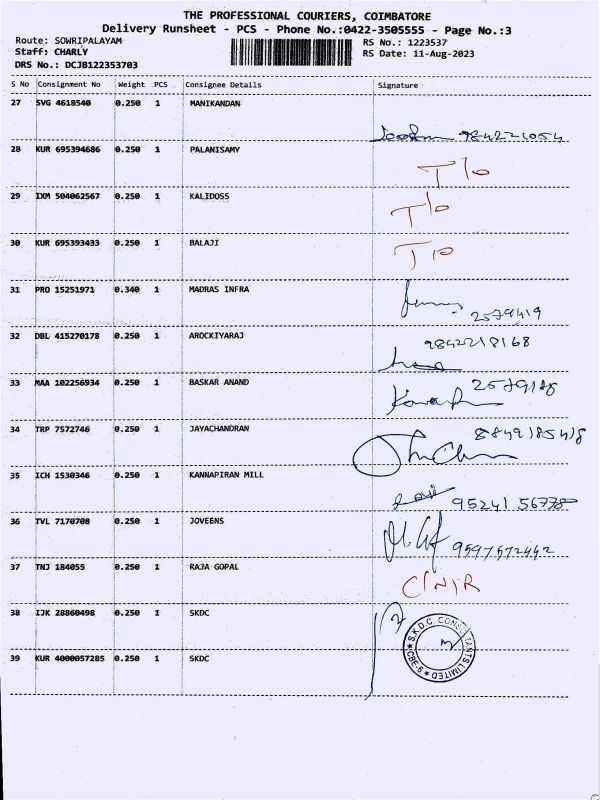 THE PROFESSIONAL COURIERS, COIMBATORE
Delivery Runsheet - PCS - Phone No.:0422-3505555 - Page No.:3
Route: SOWRIPALAYAM
RS No.: 1223537
Staff: CHARLY
RS Date: 11-Aug-2023
DRS No.: DCJB122353703
S No Consignment No Weight PCS Consignee Details Signature
27 SVG 4618540 0.250 1 MANIKANDAN
9842221054
28 KUR 695394686 0.250 1 PALANISAMY
T/o
29 IXM 504062567 0.250 1 KALIDOSS
T/o
30 KUR 695393433 0.250 1 BALAJI
T/o
31 PRO 15251971 0.340 1 MADRAS INFRA
2579419
32 DBL 415270178 0.250 1 AROCKIYARAJ
9842218168
33 MAA 102256934 0.250 1 BASKAR ANAND
34 TRP 7572746 0.250 1 JAYACHANDRAN
35 ICH 1530346 0.250 1 KANNAPIRAN MILL
95241 56778
36 TVL 7170708 0.250 1 JOVEENS
9597572442
37 TNJ 184055 0.250 1 RAJA GOPAL
C/N/R
38 IJK 28860498 0.250 1 SKDC
S.K.D.C. CONSULTANTS LIMITED
CBE-6
39 KUR 4000057285 0.250 1 SKDC